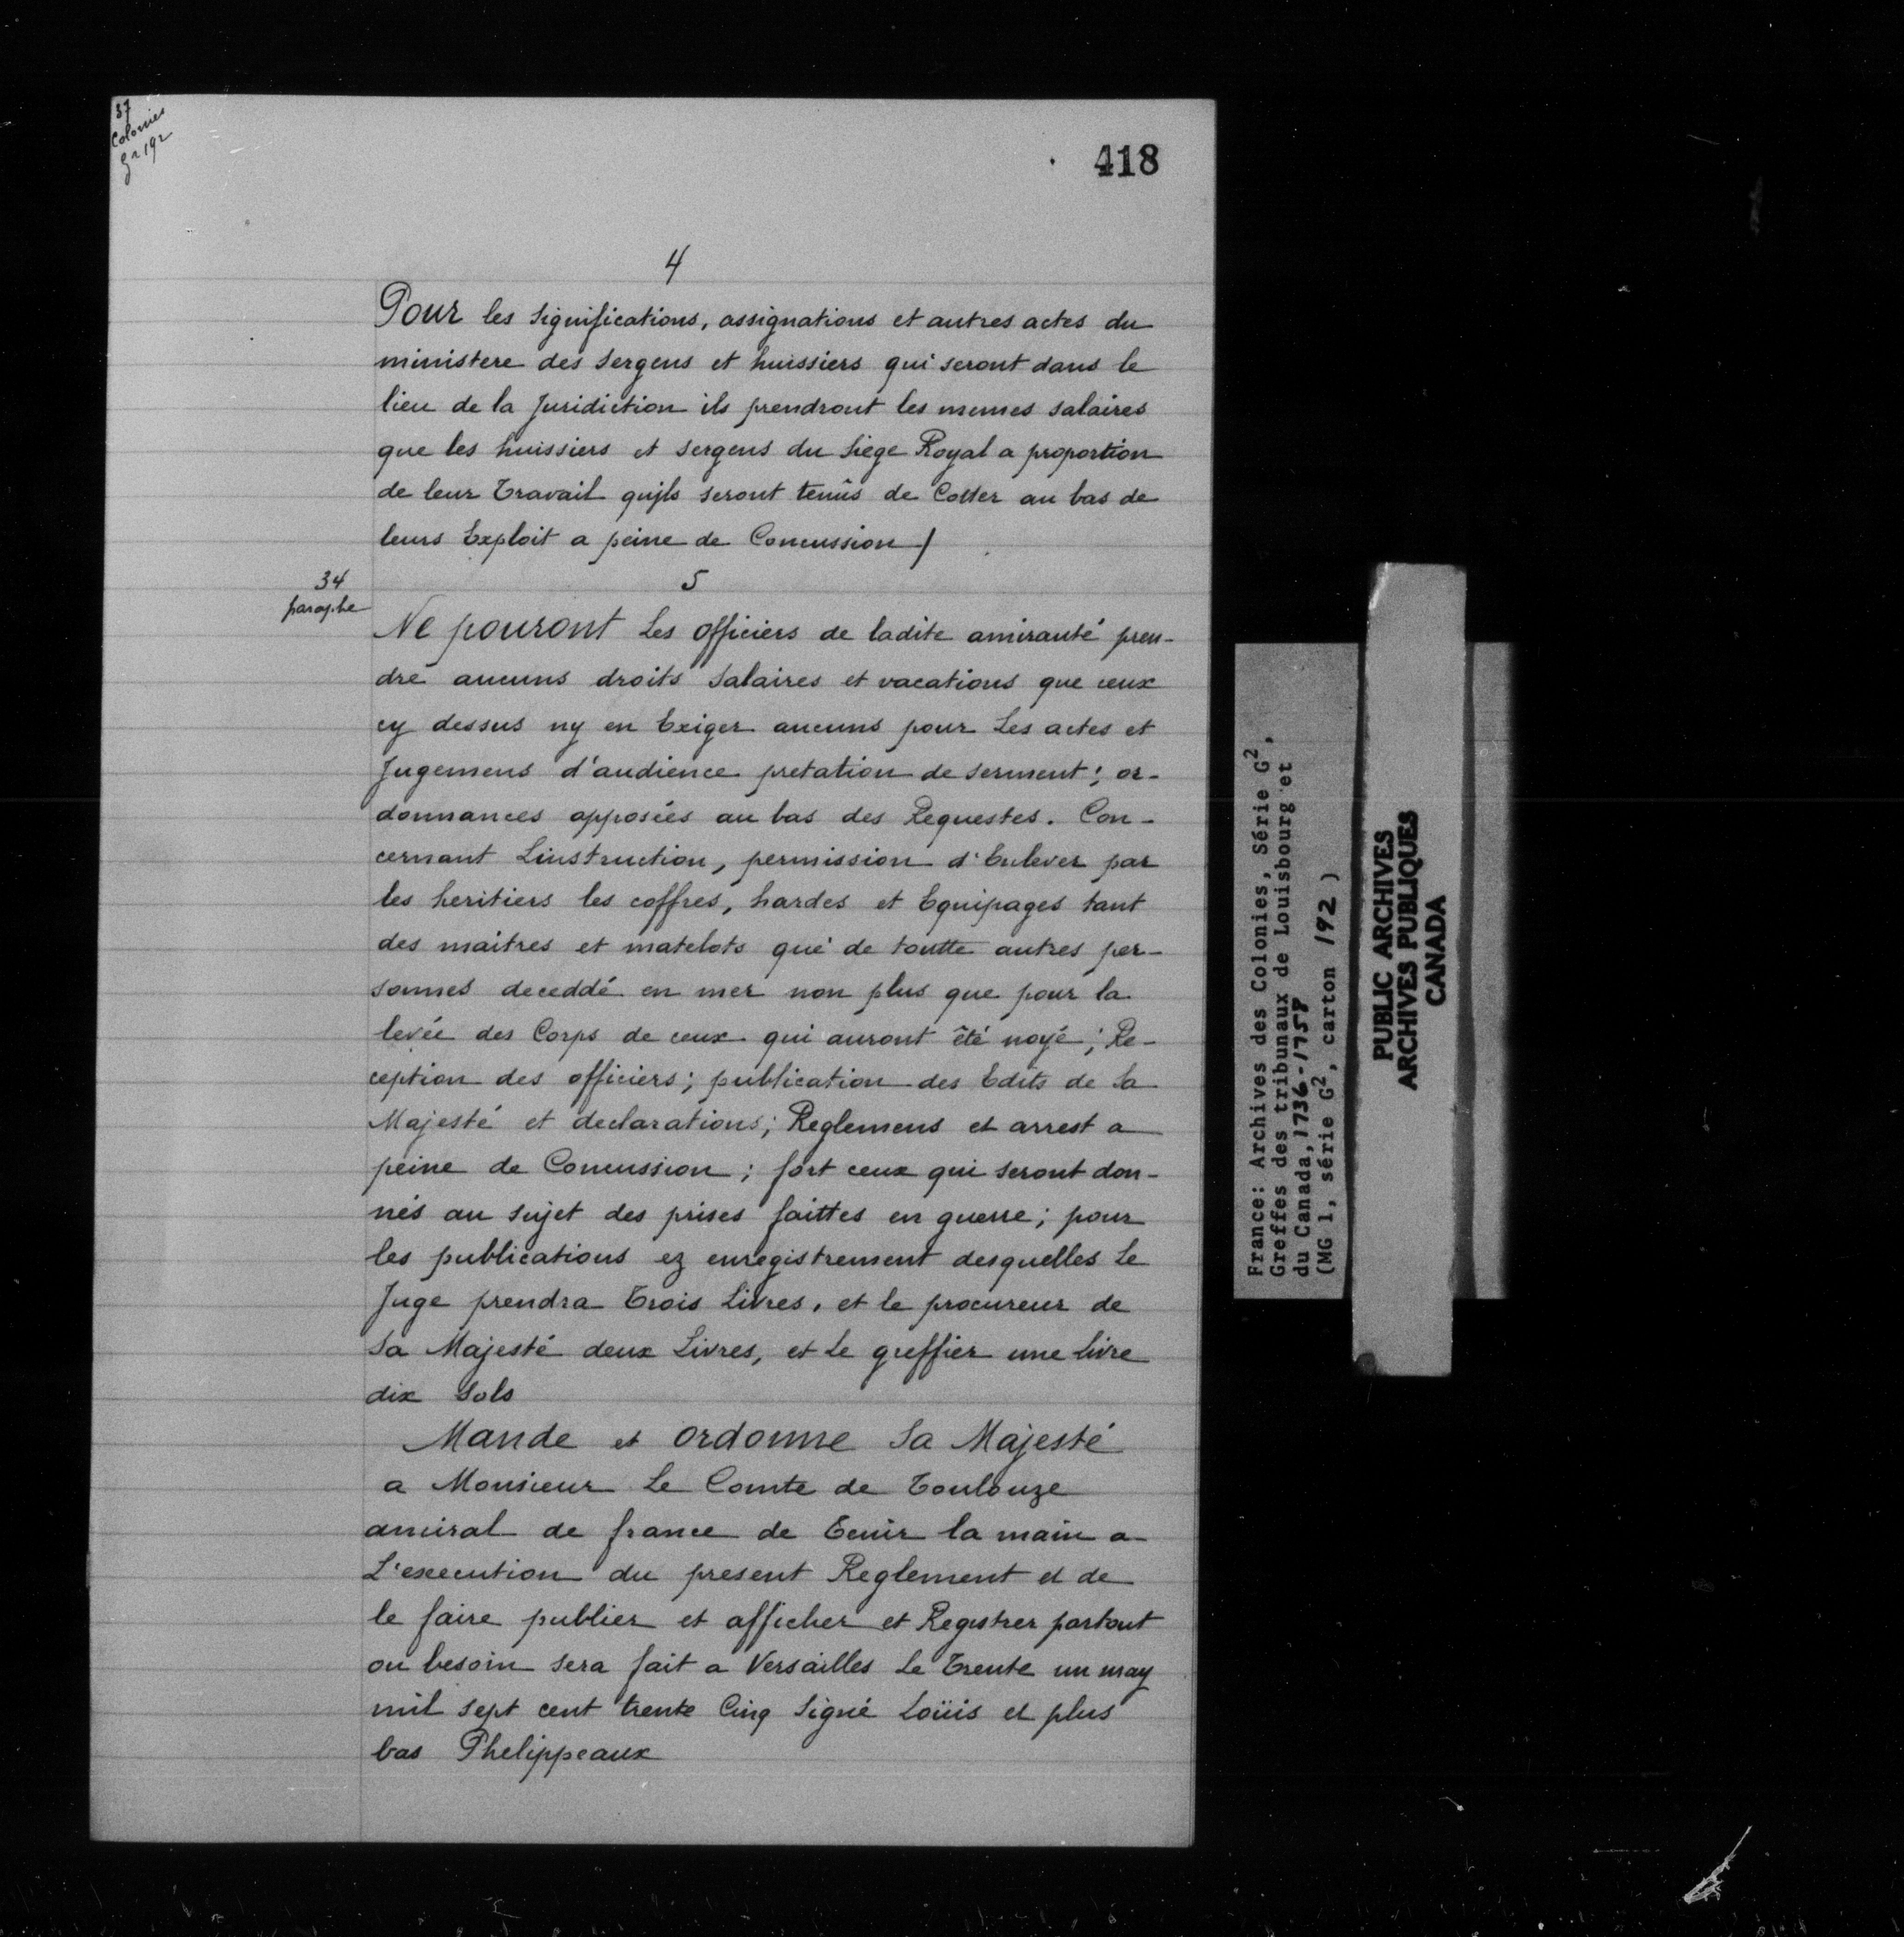 37
Colonies
G2 192
418
4
Pour les significations, assignations et autres actes du
ministere des sergens et huissiers qui seront dans le
lieu de la Juridiction ils prendront les memes salaires
que les huissiers et sergens du Siege Royal a proportion
de leur Travail qujls seront tenûs de Cotter au bas de
leurs Exploit a peine de Concussion /
34
paraphe
5
Ne pouront Les officiers de ladite amirauté pren-
dre aucuns droits salaires et vacations que ceux
cy dessus ny en Exiger aucuns pour Les actes et
Jugemens d'audience pretation de serment; or-
donnances apposées au bas des Requestes. Con-
cernant Linstruction, permission d'Enlever par
les heritiers les coffres, hardes et Equipages tant
des maitres et matelots que de toutte autres per-
sonnes deceddé en mer non plus que pour la
levée des Corps de ceux qui auront êté noyé; Re-
ception des officiers; publication des Edits de Sa
Majesté et declarations; Reglemens et arrest a
peine de Concussion; fort ceux qui seront don-
nés au sujet des prises faittes en guerre; pour
les publications ez enregistrement desquelles Le
Juge prendra Trois Livres, et le procureur de
Sa Majesté deux Livres, et Le greffier une Livre
dix Sols
Mande et ordonne Sa Majesté
a Monsieur Le Comte de Toulouze
amiral de france de Tenir la main a
L'execution du present Reglement et de
le faire publier et afficher et Registrer partout
ou besoin sera fait a Versailles Le Trente un may
mil sept cent trente Cinq Signé Loüis et plus
bas Phelippeaux
France: Archives des Colonies, Série G²,
Greffes des tribunaux de Louisbourg et
du Canada, 1736-1758
(MG 1, série G², carton 192 )
PUBLIC ARCHIVES
ARCHIVES PUBLIQUES
CANADA